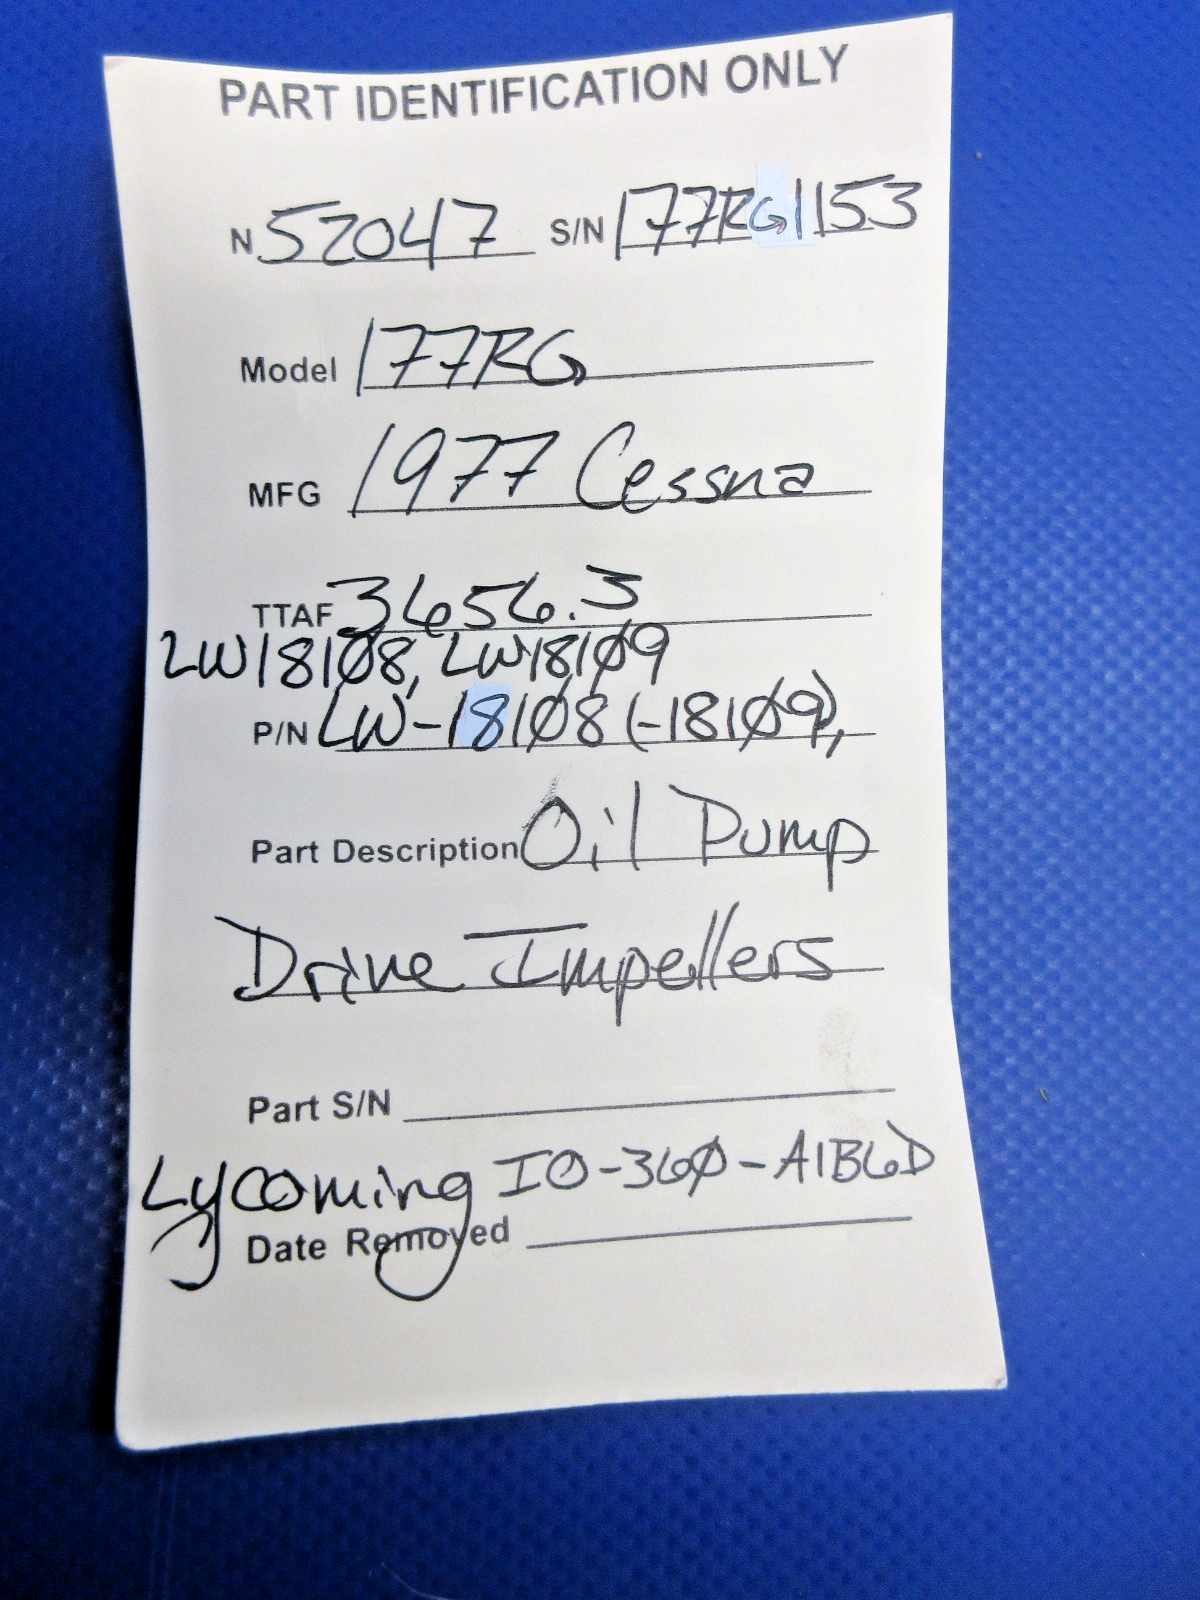 PART IDENTIFICATION ONLY
N 52047 S/N 177RG1153
Model 177RG
MFG 1977 Cessna
TTAF 3656.3
LW18108, LW18109
P/N LW-18108 (-18109),
Part Description Oil Pump
Drive Impellers
Part S/N
Lycoming IO-360-A1B6D
Date Removed